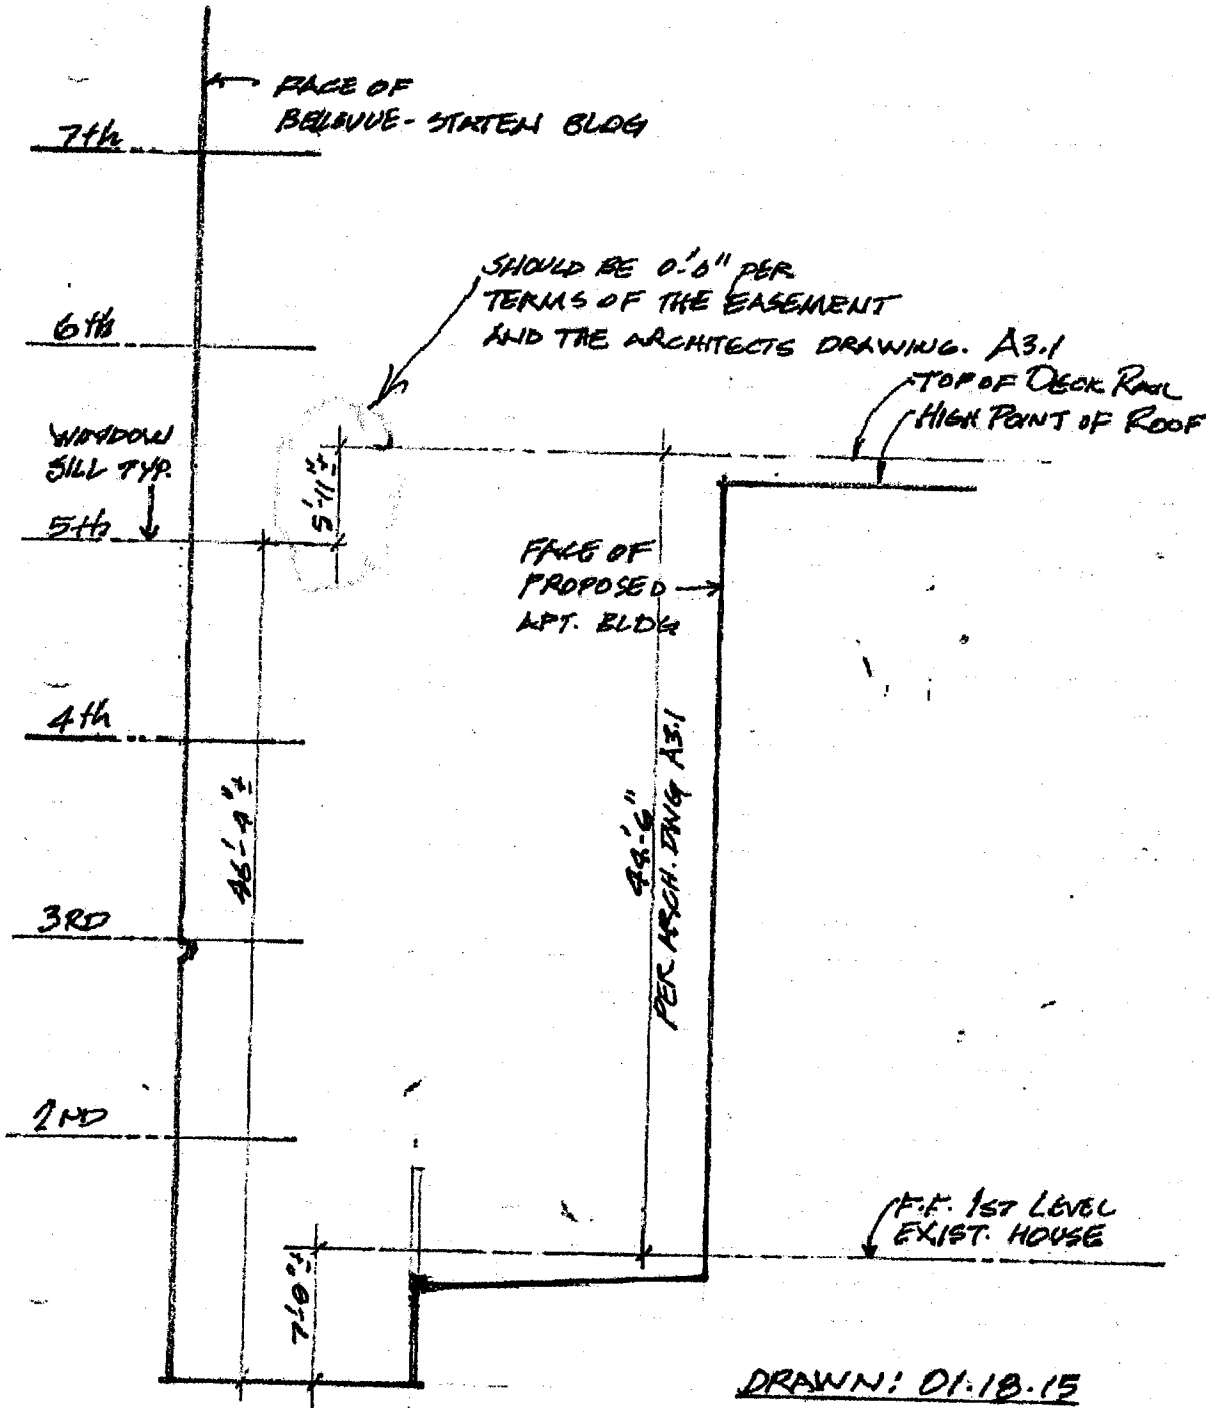 FACE OF
BELLEVUE-STATEN BLDG
7th
SHOULD BE 0'-0" PER
TERMS OF THE EASEMENT
AND THE ARCHITECTS DRAWING. A3.1
6th
TOP OF DECK RAIL
HIGH POINT OF ROOF
WINDOW
SILL TYP.
5'-11"±
5th
FACE OF
PROPOSED
APT. BLDG
4th
46'-4"±
44'-6"
PER ARCH. DWG A3.1
3RD
2ND
F.F. 1ST LEVEL
EXIST. HOUSE
7'-9"±
DRAWN: 01.18.15